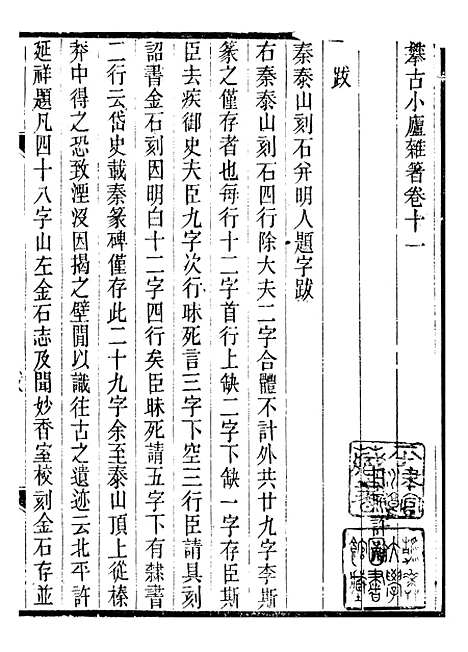 攀古小廬雜著卷十一
跋
秦泰山刻石并明人題字跋
右秦泰山刻石四行除大夫二字合體不計外共廿九字李斯
篆之僅存者也每行十二字首行上缺二字下缺一字存臣斯
臣去疾御史夫臣九字次行昧死言三字下空三行臣請具刻
詔書金石刻因明白十二字四行矣臣昧死請五字下有隸書
二行云岱史載秦篆碑僅存此二十九字余至泰山頂上從榛
莽中得之恐致湮沒因揭之壁閒以識往古之遺迹云北平許
延祥題凡四十八字山左金石志及聞妙香室校刻金石存並
許
大學
圖書
館藏